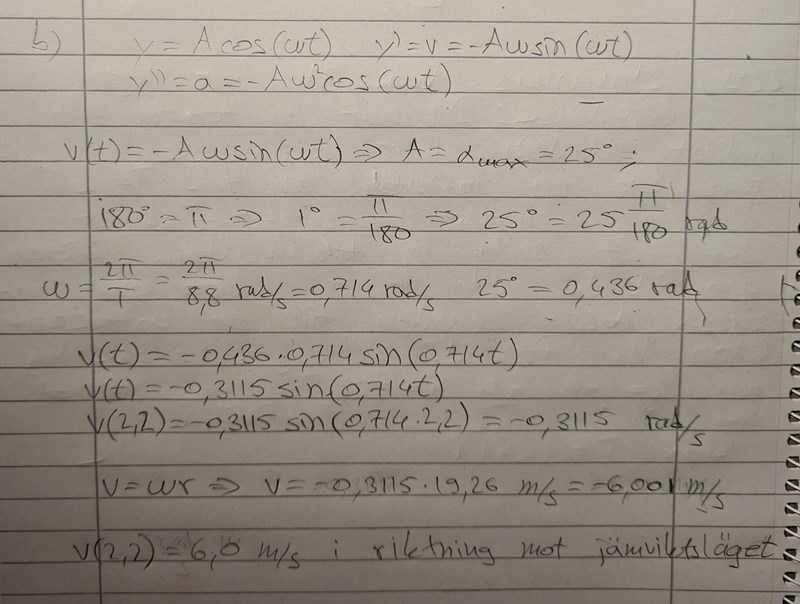 b) y = A cos(ωt) y' = v = -Aω sin(ωt)
y'' = a = -Aω² cos(ωt)
v(t) = -Aω sin(ωt) ⇒ A = α_max = 25° ;
180° = π ⇒ 1° = π/180 ⇒ 25° = 25 π/180 rad
ω = 2π/T = 2π/8,8 rad/s = 0,714 rad/s 25° = 0,436 rad
v(t) = -0,436·0,714 sin(0,714t)
v(t) = -0,3115 sin(0,714t)
v(2,2) = -0,3115 sin(0,714·2,2) = -0,3115 rad/s
v = ωr ⇒ v = -0,3115·19,26 m/s = -6,00 m/s
v(2,2) = 6,0 m/s i riktning mot jämviktsläget